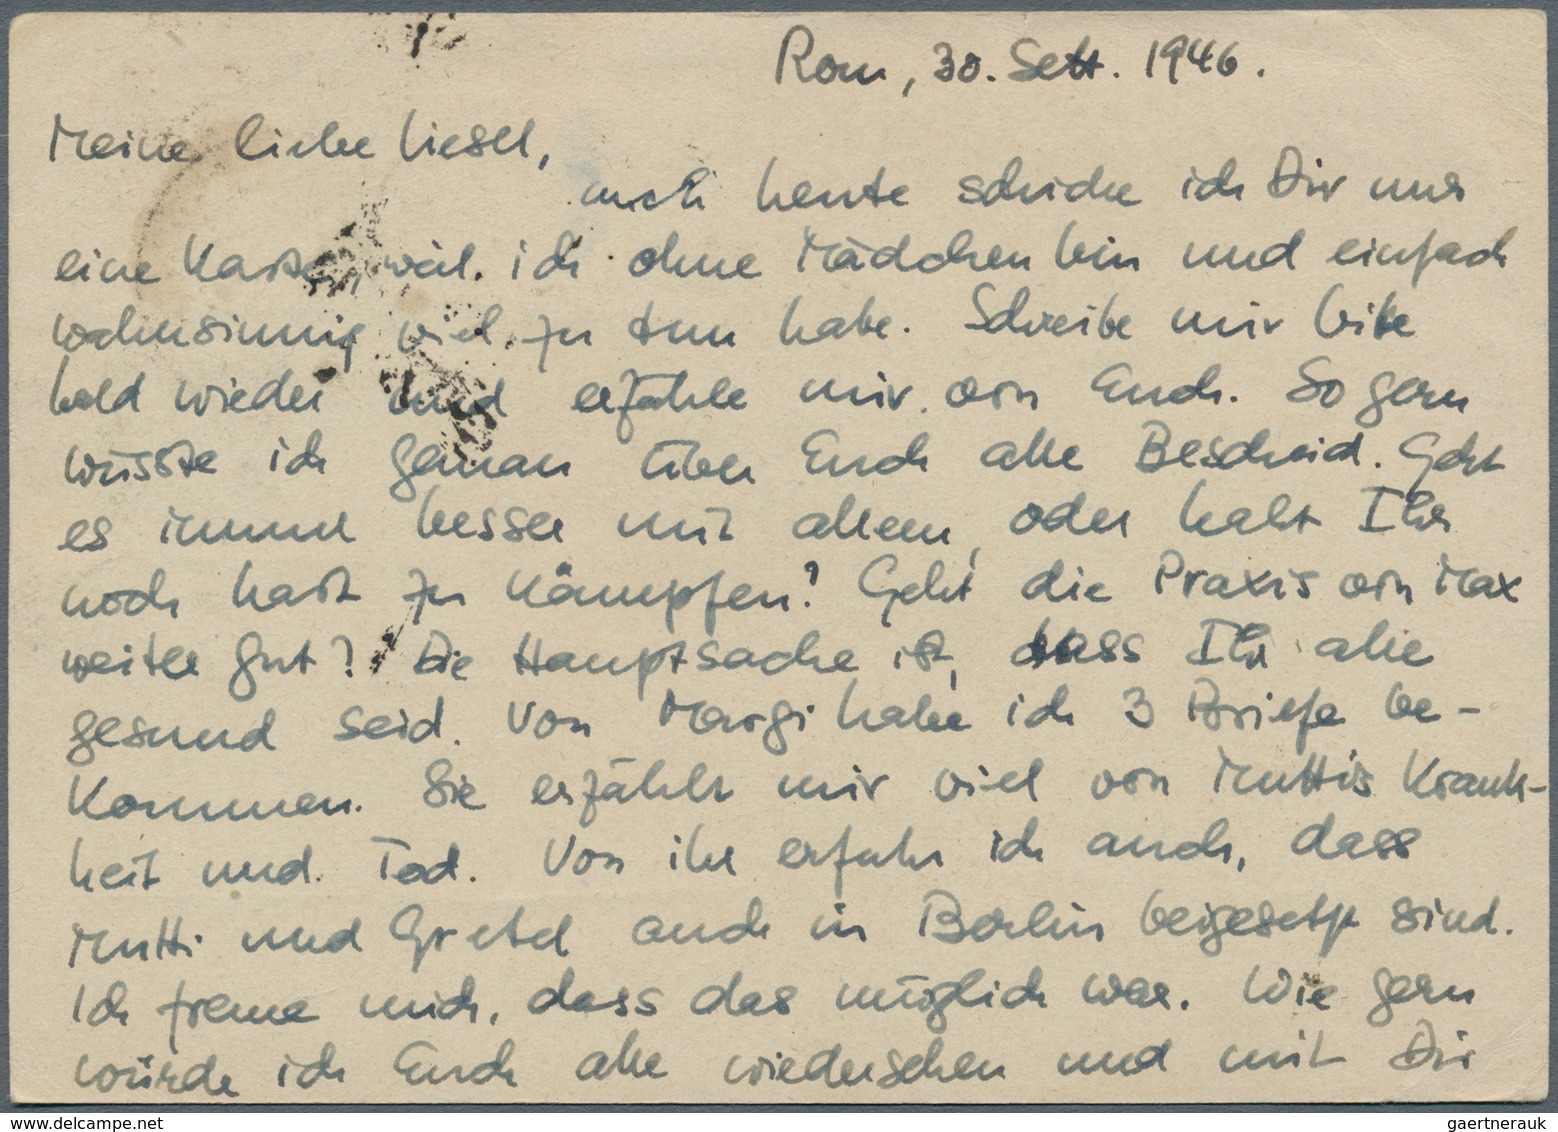 Rom, 30. Sett. 1946.
Meine liebe Liesel,
auch heute schicke ich Dir nur
eine Karte, weil ich ohne Mädchen bin und einfach
wahnsinnig viel zu tun habe. Schreibe mir bitte
bald wieder und erzähle mir von Euch. So gern
wüsste ich genau über Euch alle Bescheid. Geht
es immer besser mit allem, oder habt Ihr
noch hart zu kämpfen? Geht die Praxis von Max
weiter gut? Die Hauptsache ist, dass Ihr alle
gesund seid. Von Margi habe ich 3 Briefe be-
kommen. Sie erzählt mir viel von Muttis Krank-
heit und Tod. Von ihr erfuhr ich auch, dass
Mutti und Gretel auch in Berlin beigesetzt sind.
Ich freue mich, dass das möglich war. Wie gern
würde ich Euch alle wiedersehen und mit Dir
gaertnerauk @ delcampe.net